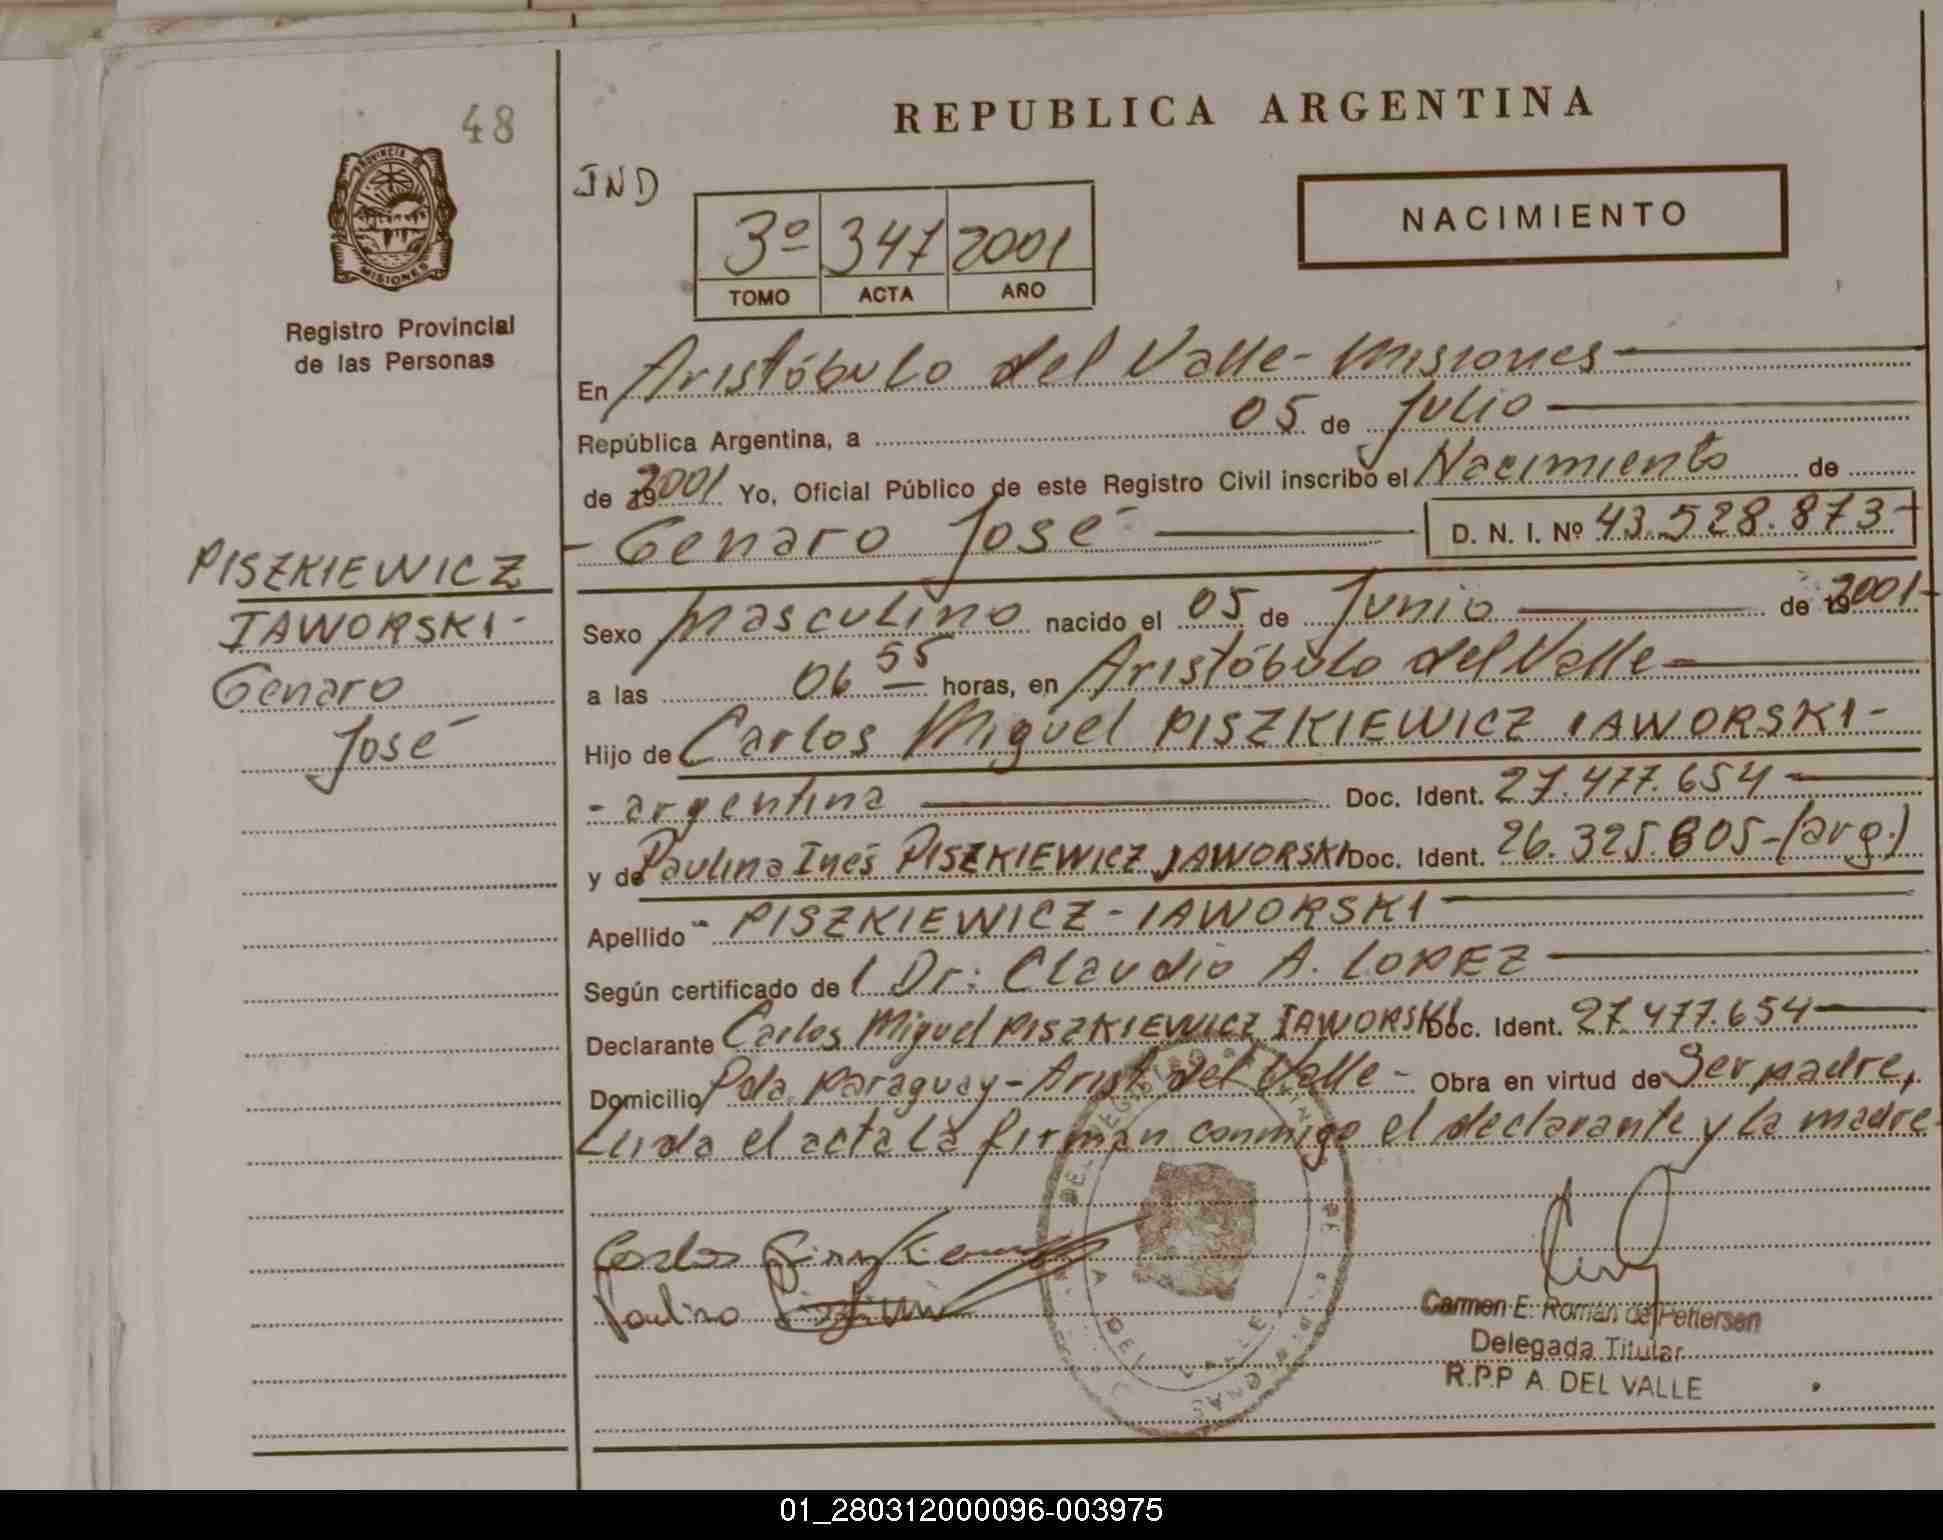 48
PROVINCIA DE
MISIONES
Registro Provincial
de las Personas
PISZKIEWICZ
IAWORSKI-
Genaro
José
REPUBLICA ARGENTINA
IND
3º 347 2001
TOMO ACTA AÑO
NACIMIENTO
En Aristóbulo del Valle - Misiones
República Argentina, a 05 de Julio
de 2001 Yo, Oficial Público de este Registro Civil inscribo el Nacimiento de
- Genaro José - D. N. I. Nº 43.528.873-
Sexo Masculino nacido el 05 de Junio de 2001-
a las 06 55 horas, en Aristóbulo del Valle
Hijo de Carlos Miguel PISZKIEWICZ IAWORSKI-
- argentina Doc. Ident. 27.477.654
y de Paulina Inés PISZKIEWICZ JAWORSKI Doc. Ident. 26.325.805-(arg.)
Apellido - PISZKIEWICZ - IAWORSKI
Según certificado de l Dr: Claudio A. LOPEZ
Declarante Carlos Miguel PISZKIEWICZ IAWORSKI Doc. Ident. 27.477.654
Domicilio Pda. Paraguay - Arist. del Valle - Obra en virtud de Ser padre,
Leida el acta la firman conmigo el declarante y la madre-
Carlos
Paulina
A. DEL VALLE
Carmen E. Román de Pettersen
Delegada Titular
R.P.P A. DEL VALLE
01_280312000096-003975